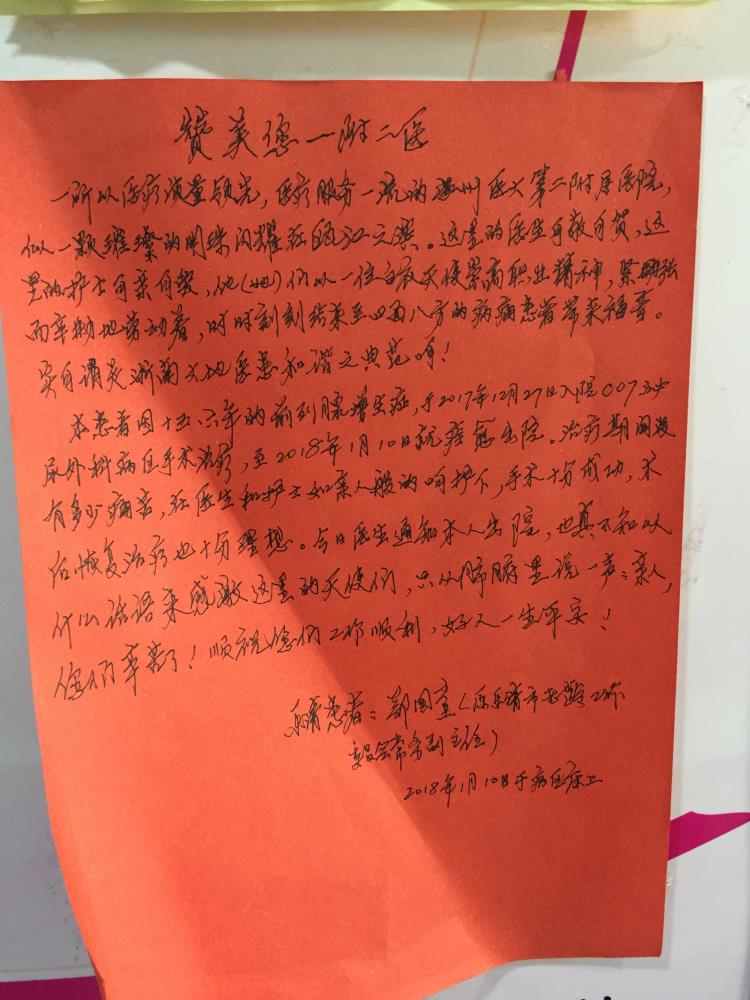 赞美您—附二医
一所以医疗质量领先，医疗服务一流的温州医大第二附属医院，
似一颗璀璨的明珠闪耀在瓯江之滨。这里的医生可敬可贺，这
里的护士可亲可赞，他(她)们以一位白衣天使崇高职业精神，紧张
而辛勤地劳动着，时时刻刻给来至四面八方的病痛患者带来福音。
实可谓是浙南大地医患和谐之典范呀！
本患者因十五、六年的前列腺增生症，于2017年12月27日入院C07泌
尿外科病区手术治疗，至2018年1月10日就痊愈出院。治疗期间没
有多少痛苦，在医生和护士如亲人般的呵护下，手术十分成功，术
后恢复治疗也十分理想。今日医生通知本人出院，也真不知以
什么话语来感激这里的天使们，只从肺腑里说一声：亲人，
您们辛苦了！顺祝您们工作顺利，好人一生平安！
患者：郑国（原乐清市工作
委员会常务副主任）
2018年1月10日于病区床上